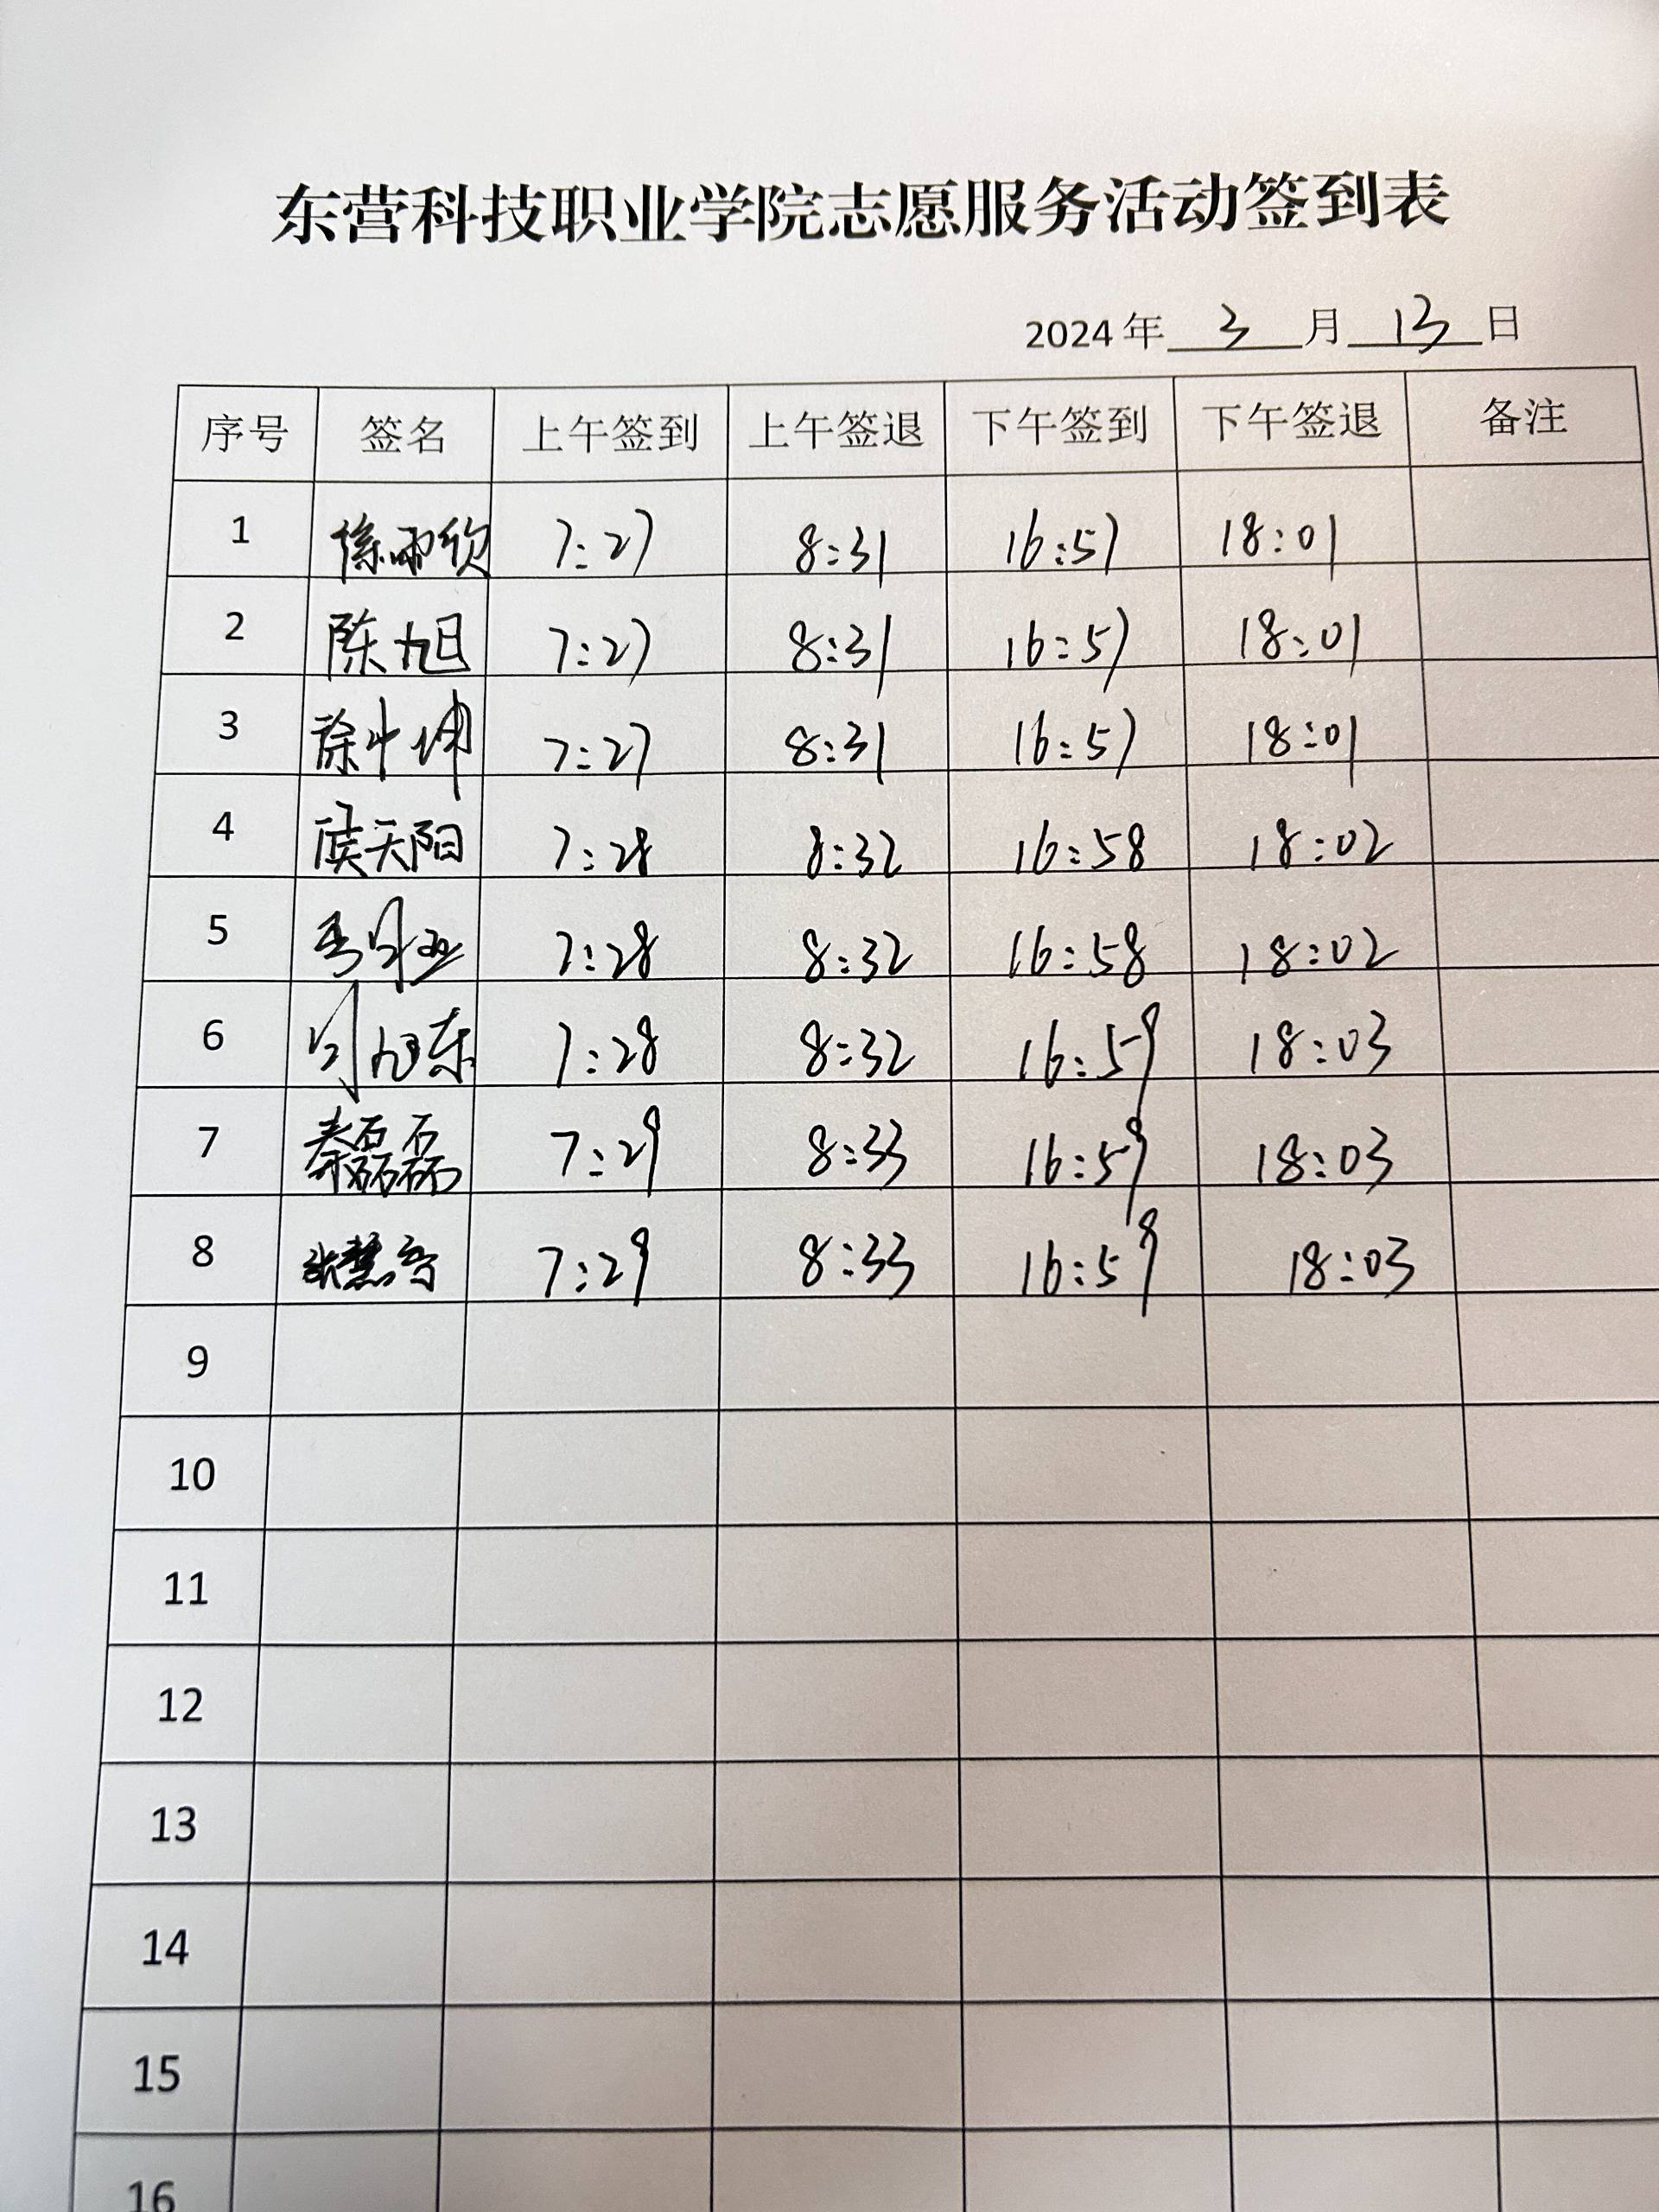 东营科技职业学院志愿服务活动签到表
2024 年 3 月 13 日
序号 签名 上午签到 上午签退 下午签到 下午签退 备注
1 徐雨欣 7:27 8:31 16:57 18:01
2 陈旭 7:27 8:31 16:57 18:01
3 徐中坤 7:27 8:31 16:57 18:01
4 侯天阳 7:28 8:32 16:58 18:02
5 7:28 8:32 16:58 18:02
6 旭东 7:28 8:32 16:59 18:03
7 秦磊磊 7:29 8:33 16:59 18:03
8 张慧 7:29 8:33 16:59 18:03
9
10
11
12
13
14
15
16